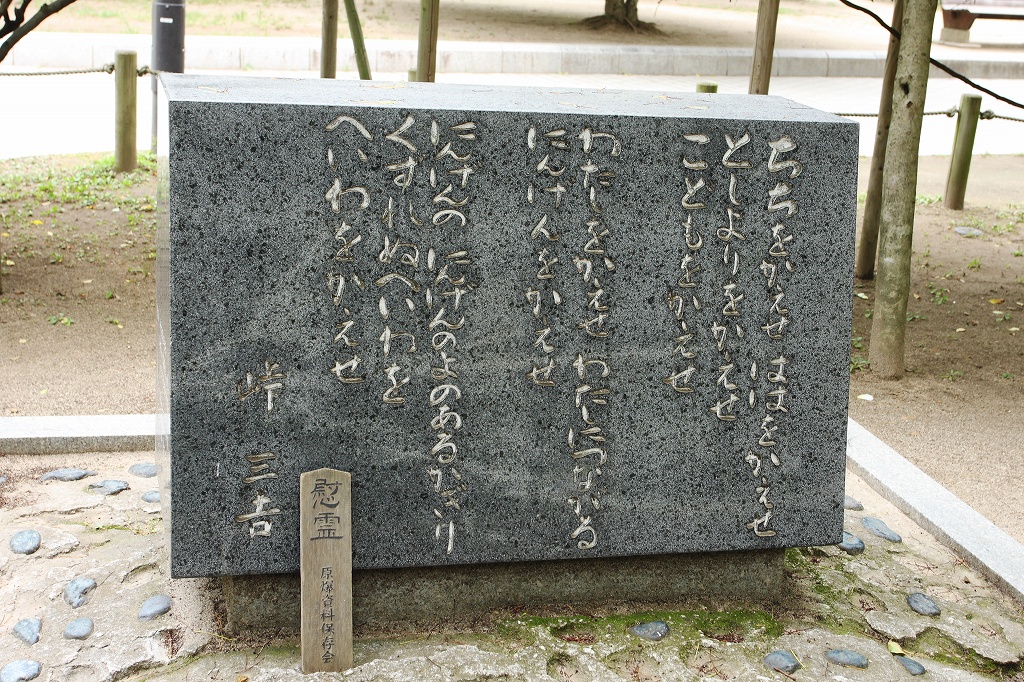 ちちをかえせ ははをかえせ
としよりをかえせ
こどもをかえせ
わたしをかえせ わたしにつながる
にんげんをかえせ
にんげんの にんげんのよのあるかぎり
くずれぬへいわを
へいわをかえせ
峠 三吉
慰霊
原爆資料保存会